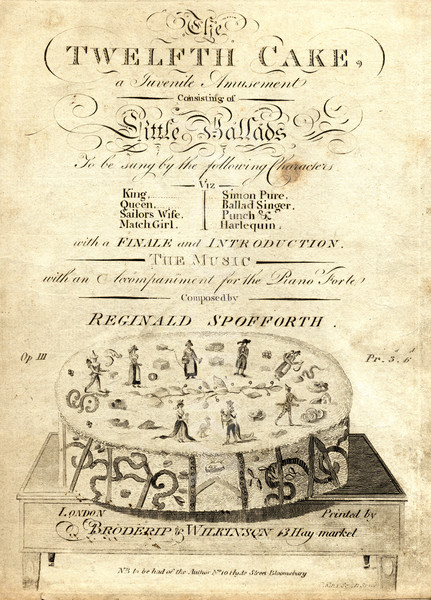 The
TWELFTH CAKE,
a Juvenile Amusement
Consisting of
Little Ballads
To be sung by the following Characters
Viz
King. Simon Pure.
Queen. Ballad Singer.
Sailors Wife. Punch &
Match Girl. Harlequin.
with a FINALE and INTRODUCTION.
THE MUSIC
with an Accompaniment for the Piano Forte
Composed by
REGINALD SPOFFORTH.
Op III Pr. 3s 6d
LONDON Printed by
BRODERIP & WILKINSON 13 Hay market
NB to be had of the Author No 10 Clyde Street Bloomsbury